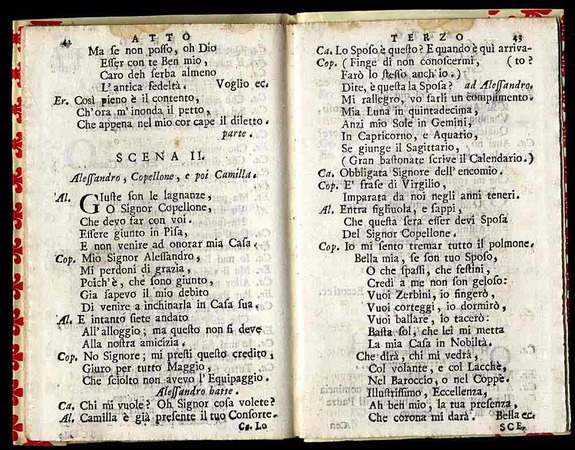 44 ATTO
Ma se non posso, oh Dio
Esser con te Ben mio,
Caro deh serba almeno
L'antica fedeltà. Voglio ec.
Er. Così pieno è il contento,
Ch'ora m'inonda il petto,
Che appena nel mio cor cape il diletto.
parte.
SCENA II.
Alessandro, Copellone, e poi Camilla.
Al. Giuste son le lagnanze,
O Signor Copellone,
Che devo far con voi.
Essere giunto in Pisa,
E non venire ad onorar mia Casa.
Cop. Mio Signor Alessandro,
Mi perdoni di grazia,
Poich'è, che sono giunto,
Gia sapevo il mio debito
Di venire a inchinarla in Casa sua.
Al. E intanto siete andato
All'alloggio; ma questo non si deve
Alla nostra amicizia.
Cop. No Signore; mi presti questo credito,
Giuro per tutto Maggio,
Che sciolto non avevo l'Equipaggio.
Alessandro batte.
Ca. Chi mi vuole? Oh Signor cosa volete?
Al. Camilla è già presente il tuo Consorte.
Ca. Lo
TERZO 45
Ca. Lo Sposo è questo? E quando è quì arriva-
Cop. (Finge di non conoscermi, (to?
Farò lo stesso anch'io.)
Dite, è questa la Sposa? ad Alessandro.
Mi rallegro, vo farli un complimento.
Mia Luna in quintadecima,
Anzi mio Sole in Gemini,
In Capricorno, e Aquario,
Se giunge il Sagittario,
(Gran bastonate scrive il Calendario.)
Ca. Obbligata Signore dell'encomio.
Cop. E' frase di Virgilio,
Imparata da noi negli anni teneri.
Al. Entra figliuola, e sappi,
Che questa sera esser devi Sposa
Del Signor Copellone.
Cop. Io mi sento tremar tutto il polmone.
Bella mia, se son tuo Sposo,
O che spassi, che festini,
Credi a me non son geloso:
Vuoi Zerbini, io fingerò,
Vuoi corteggi, io dormirò,
Vuoi ballare, io tacerò:
Basta sol, che lei mi metta
La mia Casa in Nobiltà.
Che dirà, chi mi vedrà,
Col volante, e col Lacchè,
Nel Baroccio, o nel Coppè.
Illustrissimo, Eccellenza,
Ah ben mio, la tua presenza,
Che corona mi darà. Bella ec.
SCE.